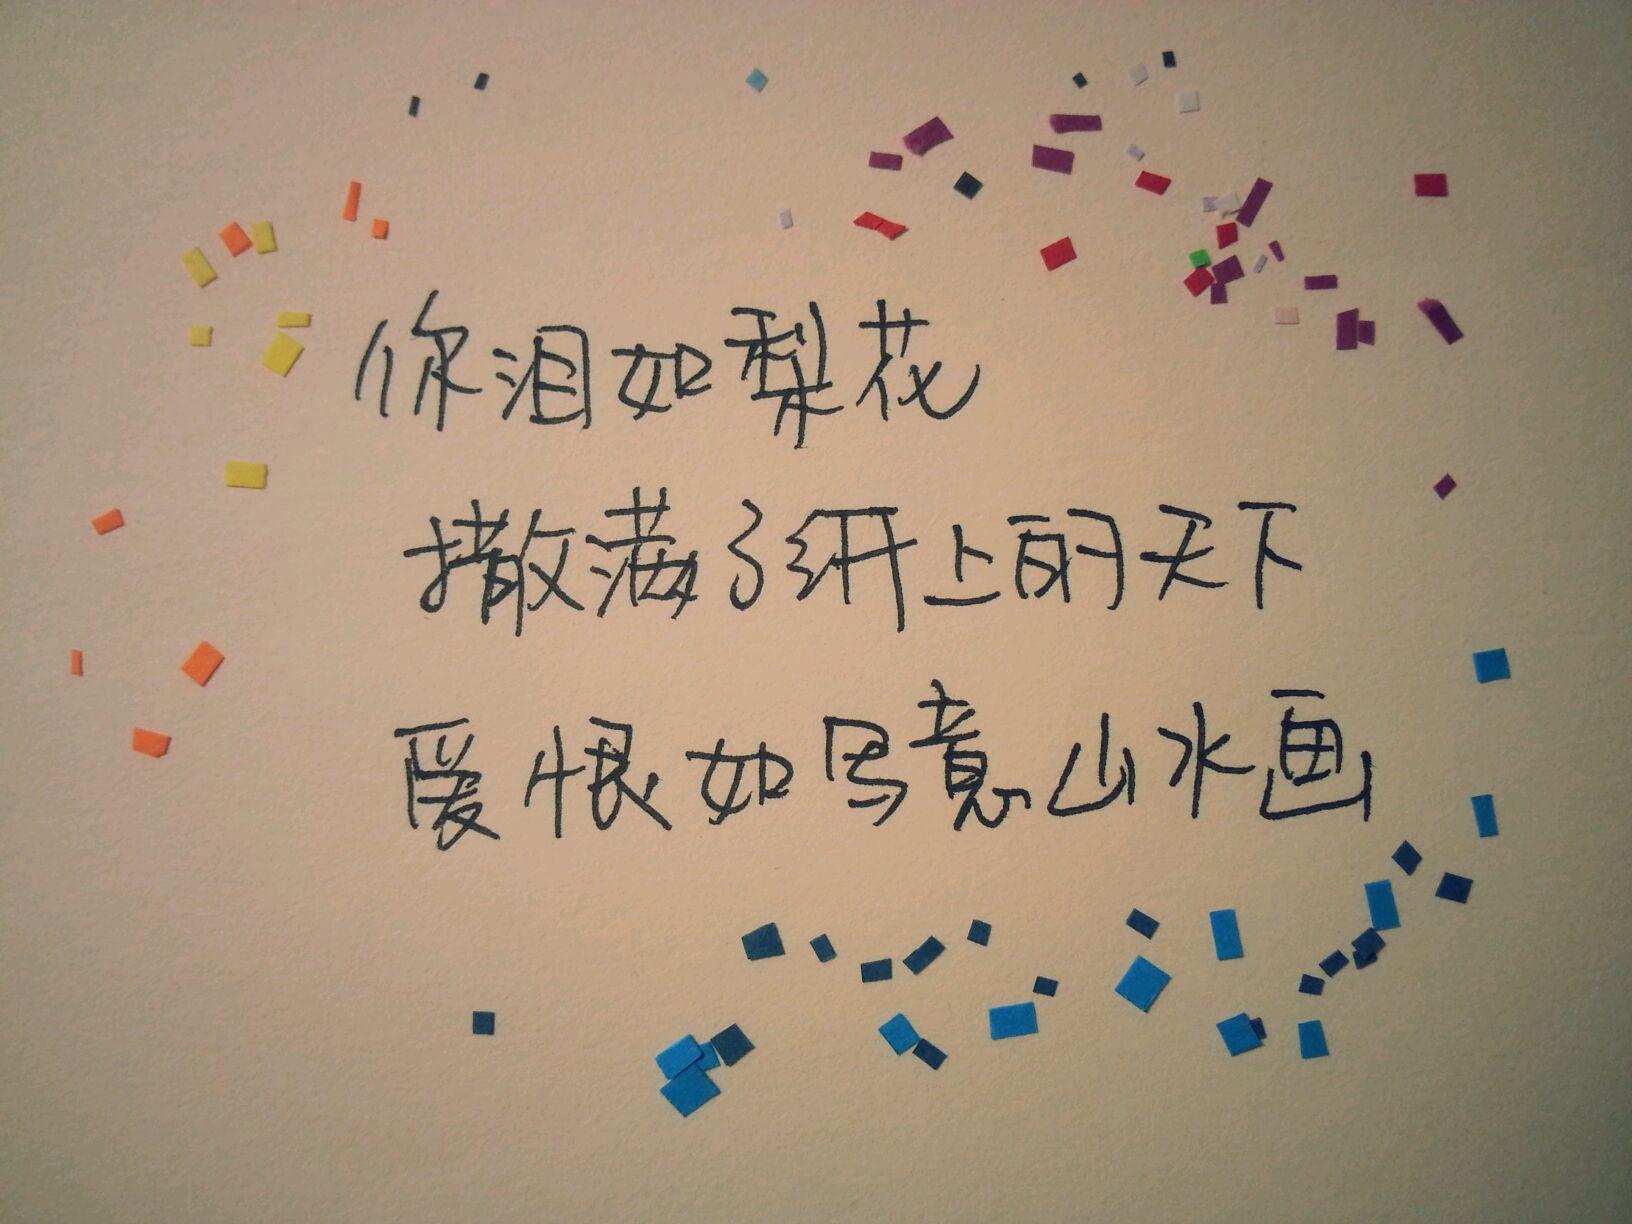 你泪如梨花
撒满了纸上的天下
爱恨如写意山水画